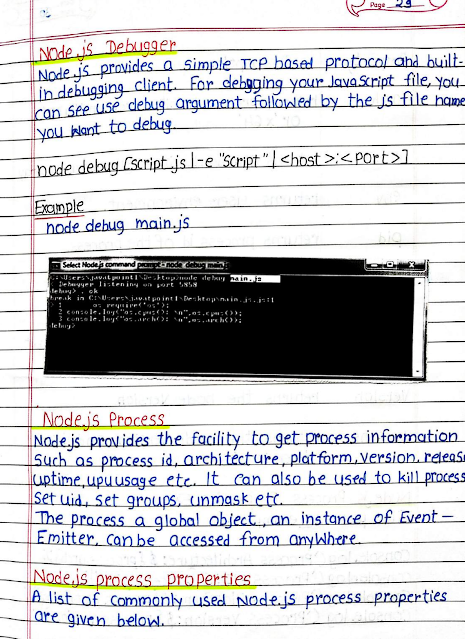 Page 29
Node.js Debugger
Node.js provides a simple TCP based protocol and built-
in debugging client. For debgging your JavaScript file, you
can see use debug argument followed by the js file name
you want to debug.
node debug [script.js | -e "script" | <host>:<port>]
Example
node debug main.js
Select Node.js command prompt - node debug main.js
C:\Users\javatpoint1\Desktop>node debug main.js
< Debugger listening on port 5858
debug> . ok
break in C:\Users\javatpoint1\Desktop\main.js:1
> 1 os=require('os');
2 console.log("os.cpus(): \n",os.cpus());
3 console.log("os.arch(): \n",os.arch());
debug>
Node.js Process
Node.js provides the facility to get process information
Such as process id, architecture, platform, version, releas
uptime, upu usage etc. It can also be used to kill process
Set uid, set groups, unmask etc.
The process a global object, an instance of Event-
Emitter, can be accessed from anywhere.
Node.js process properties
A list of commonly used Node.js process properties
are given below.